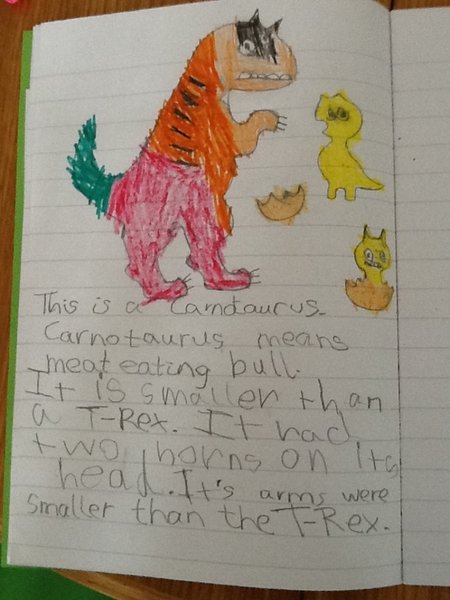 This is a Carnotaurus.
Carnotaurus means
meat eating bull.
It is smaller than
a T-Rex. It had
two horns on its
head. It's arms were
smaller than the T-Rex.